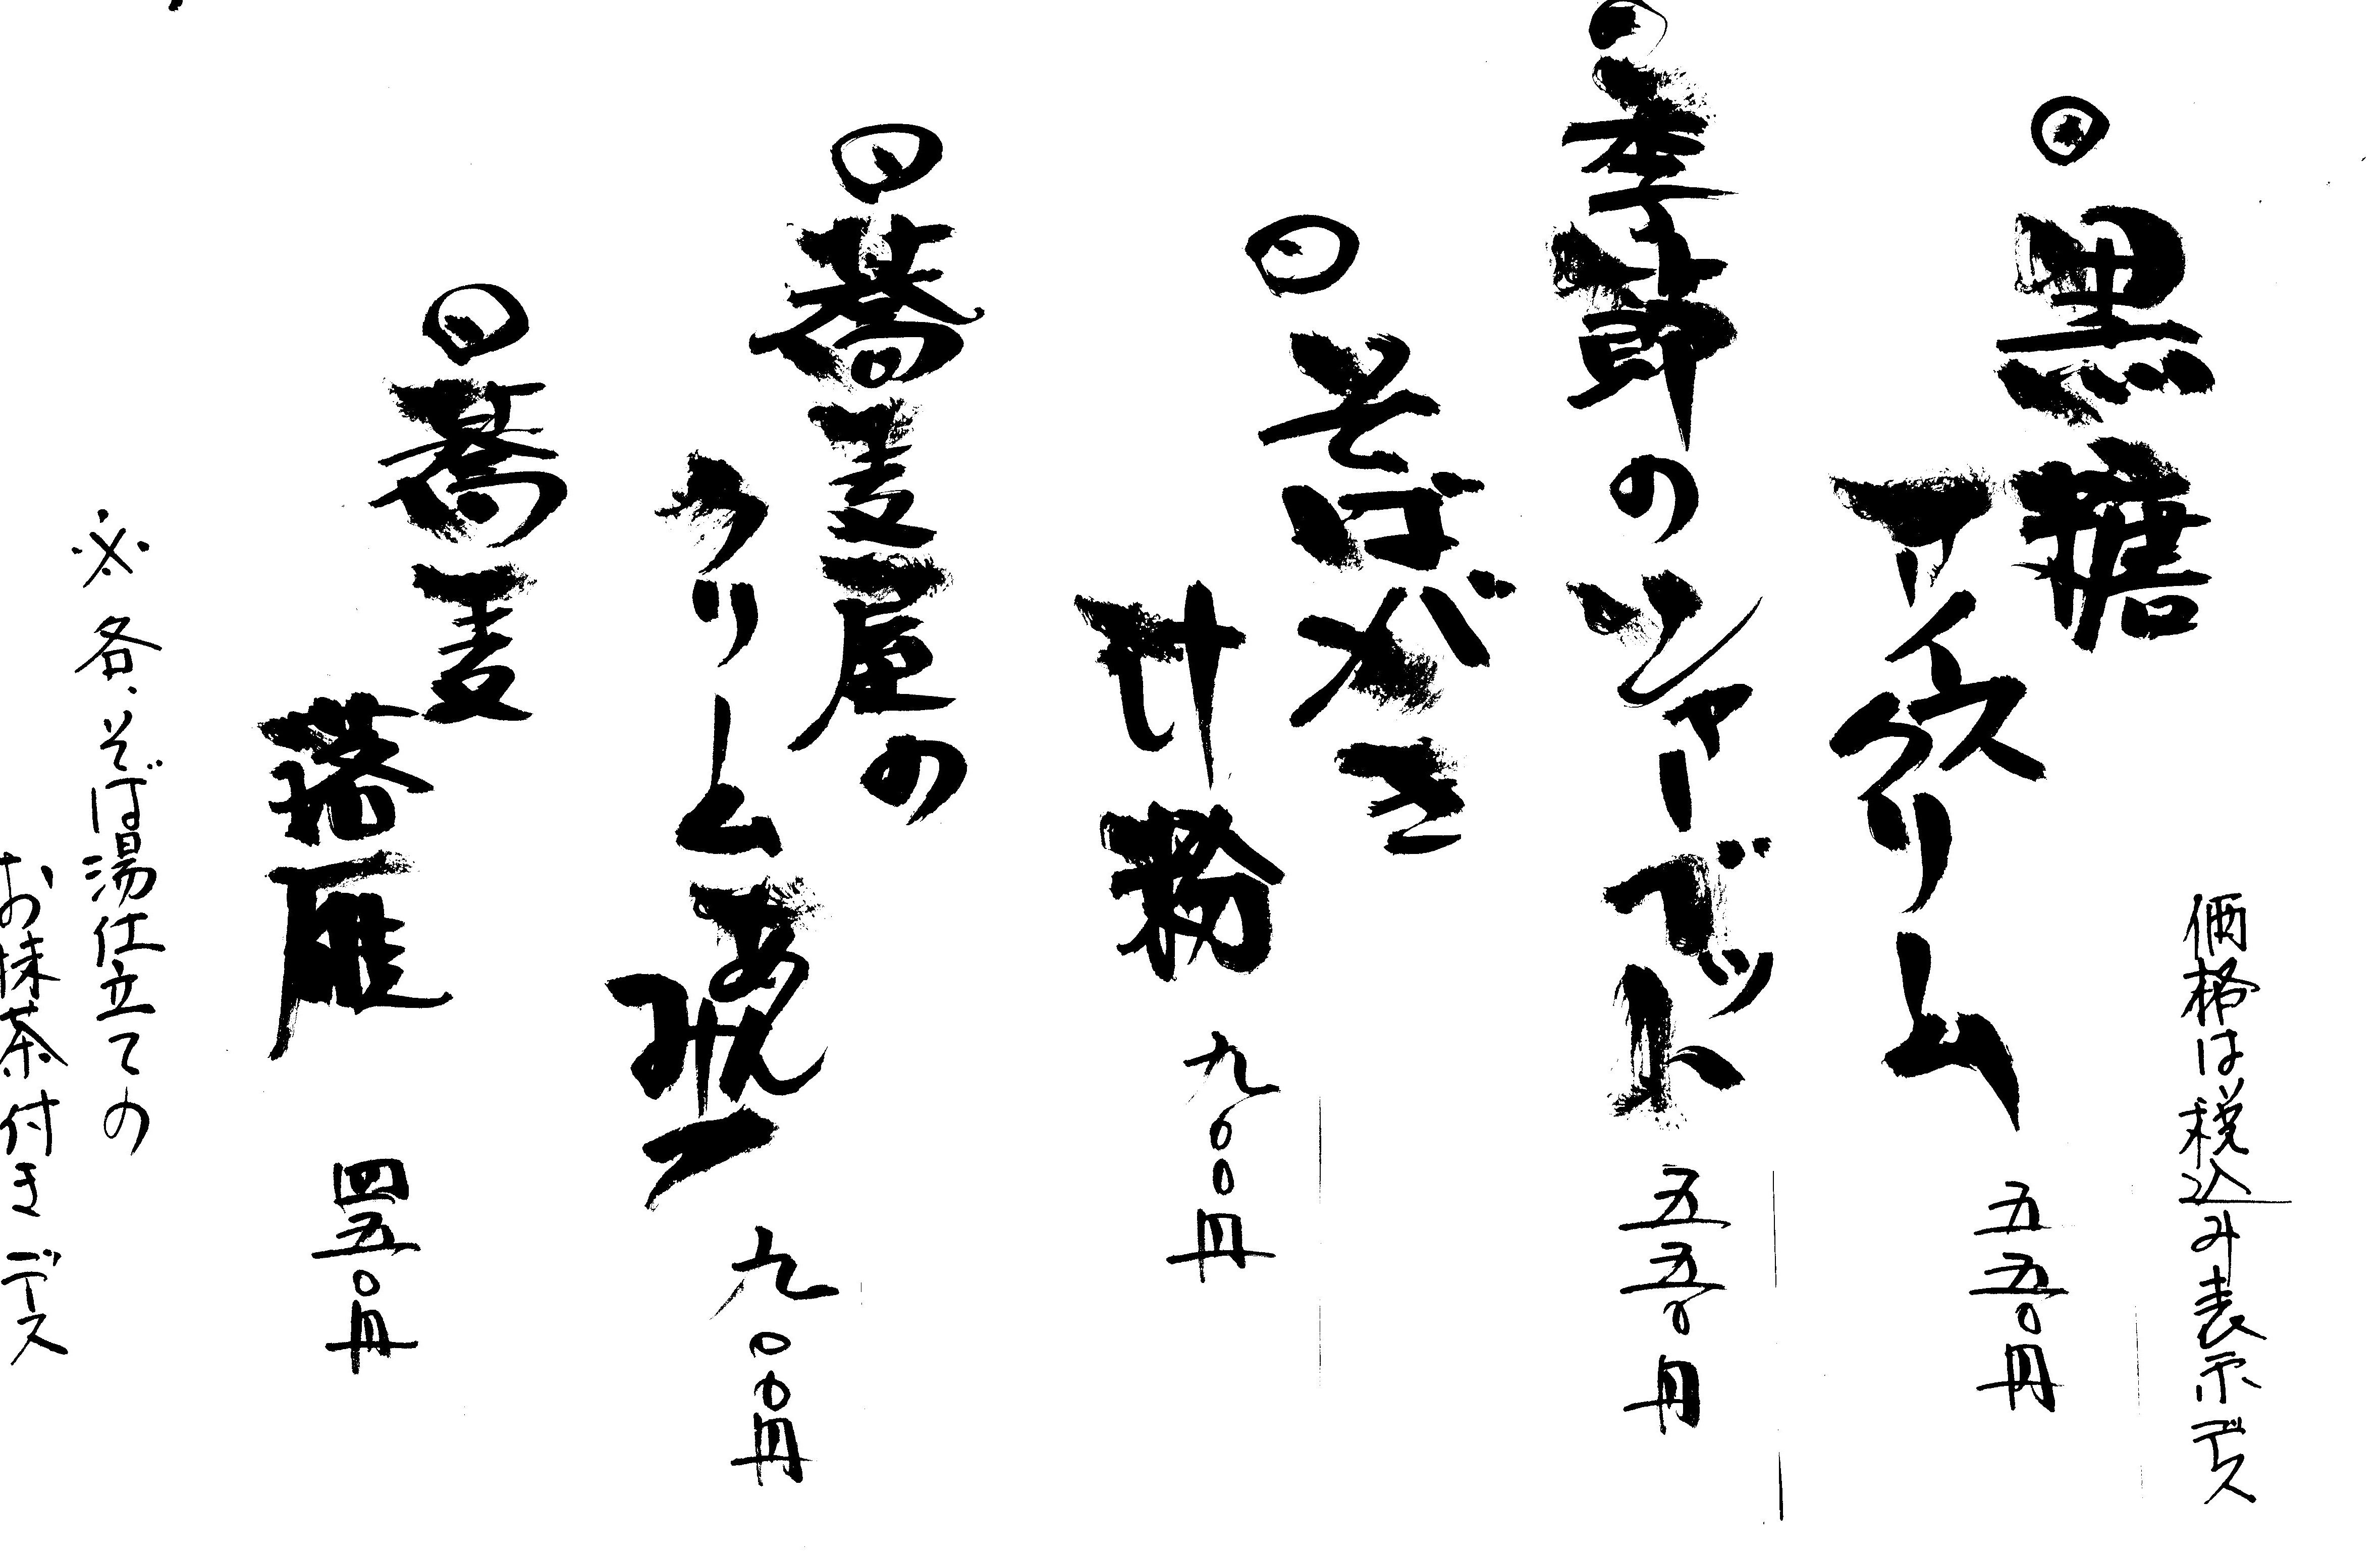 価格は税込み表示デス
◎黒糖
アイスクリーム
五五〇円
◎季節のシャーベット
五五〇円
◎そばがき
汁粉
九〇〇円
◎蕎麦屋の
クリームあんみつ
九〇〇円
◎蕎麦
落雁
四五〇円
※各、そば湯仕立ての
お抹茶付きデス